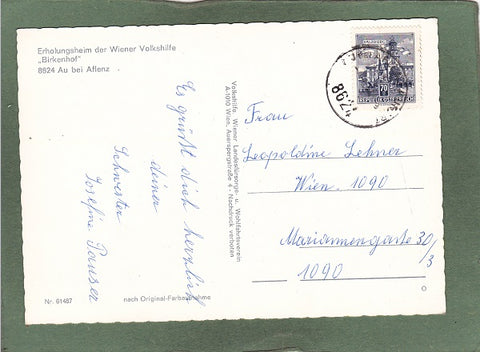 Erholungsheim der Wiener Volkshilfe
„Birkenhof"
8624 Au bei Aflenz
Es grüßt dich herzlich
deine
Schwester
Josefine Pauser
Volkshilfe, Wiener Landesfürsorge- u. Wohlfahrtsverein
A-1010 Wien, Auerspergstraße 4 - Nachdruck verboten
REPUBLIK ÖSTERREICH
70
8624
Frau
Leopoldine Lehner
Wien 1090
Mariannengasse 30/3
1090
Nr. 61487
nach Original-Farbaufnahme